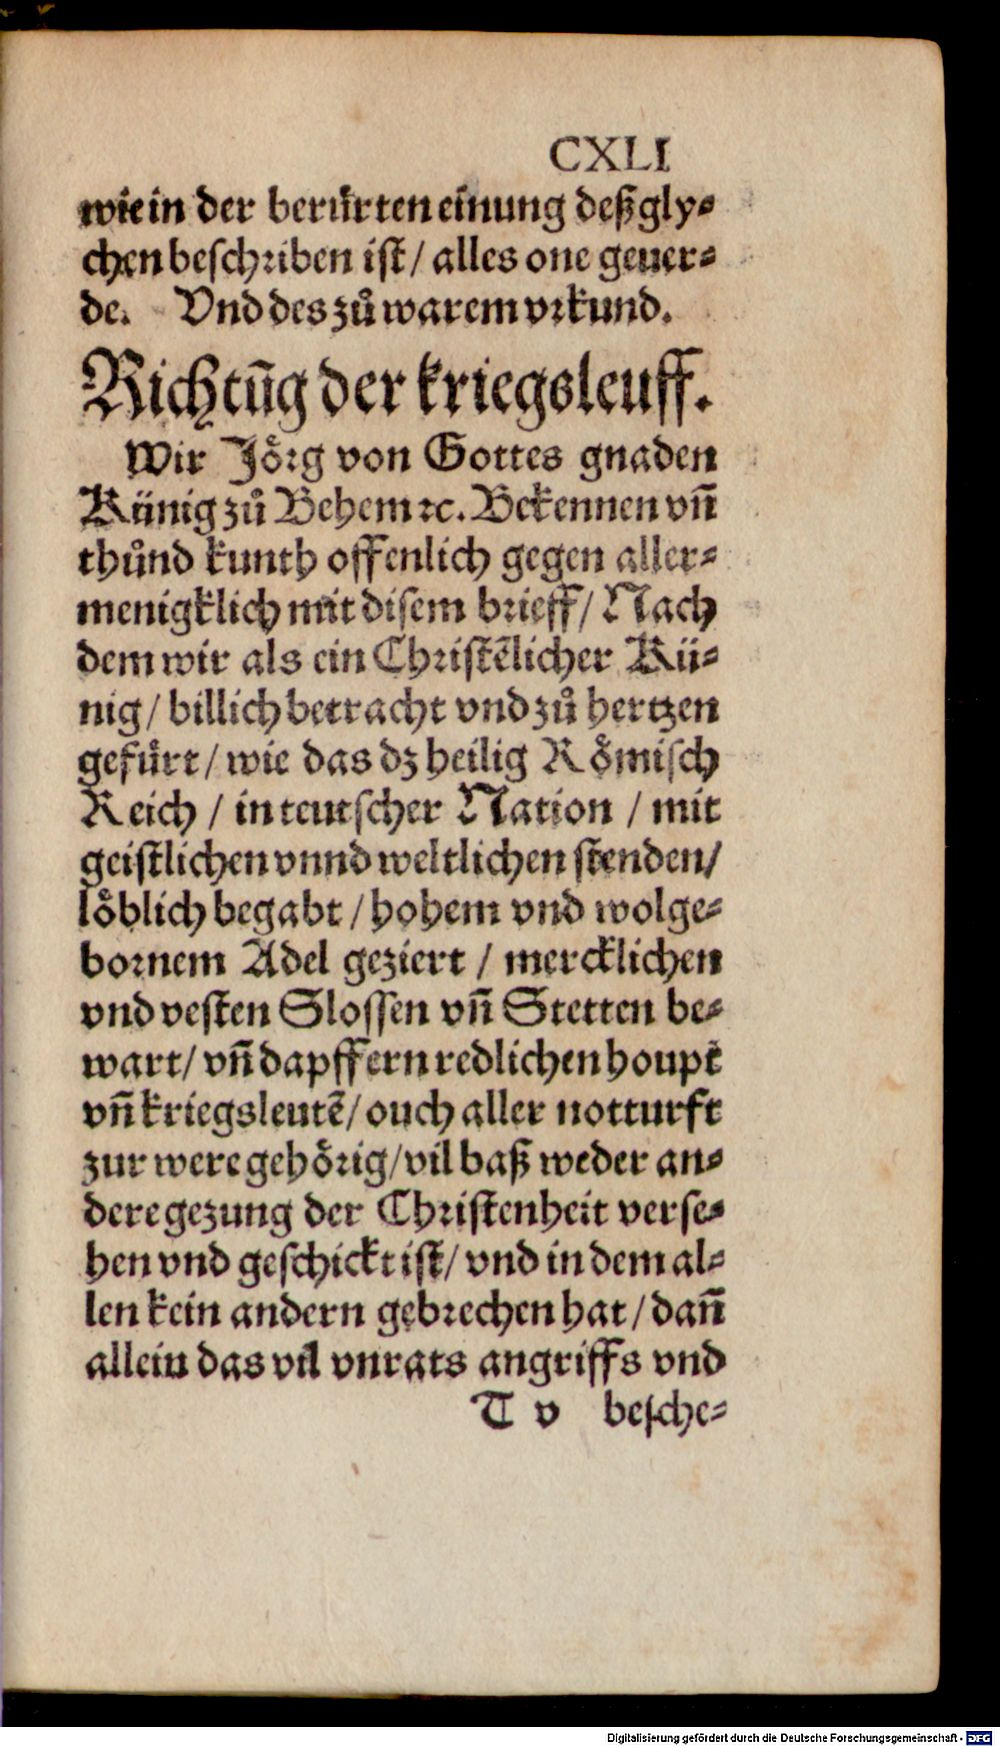 CXLI
wie in der berürten einung deßgly⸗
chen beschriben ist / alles one geuer⸗
de. Vnd des zů warem vrkund.
Richtūg der kriegsleuff.
Wir Jörg von Gottes gnaden
Künig zů Behem ꝛc. Bekennen vn̄
thůnd kunth offenlich gegen aller⸗
menigklich mit disem brieff / Nach
dem wir als ein Christēlicher Kü⸗
nig / billich betracht vnd zů hertzen
gefürt / wie das dz heilig Römisch
Reich / in teutscher Nation / mit
geistlichen vnnd weltlichen stenden /
löblich begabt / hohem vnd wolge⸗
bornem Adel geziert / mercklichen
vnd vesten Slossen vn̄ Stetten be⸗
wart / vn̄ dapffern redlichen houpt
vn̄ kriegsleutē / ouch aller notturft
zur were gehörig / vil baß weder an⸗
dere gezung der Christenheit verse⸗
hen vnd geschickt ist / vnd in dem al⸗
len kein andern gebrechen hat / dan̄
allein das vil vnrats angriffs vnd
T v besche⸗
Digitalisierung gefördert durch die Deutsche Forschungsgemeinschaft - DFG